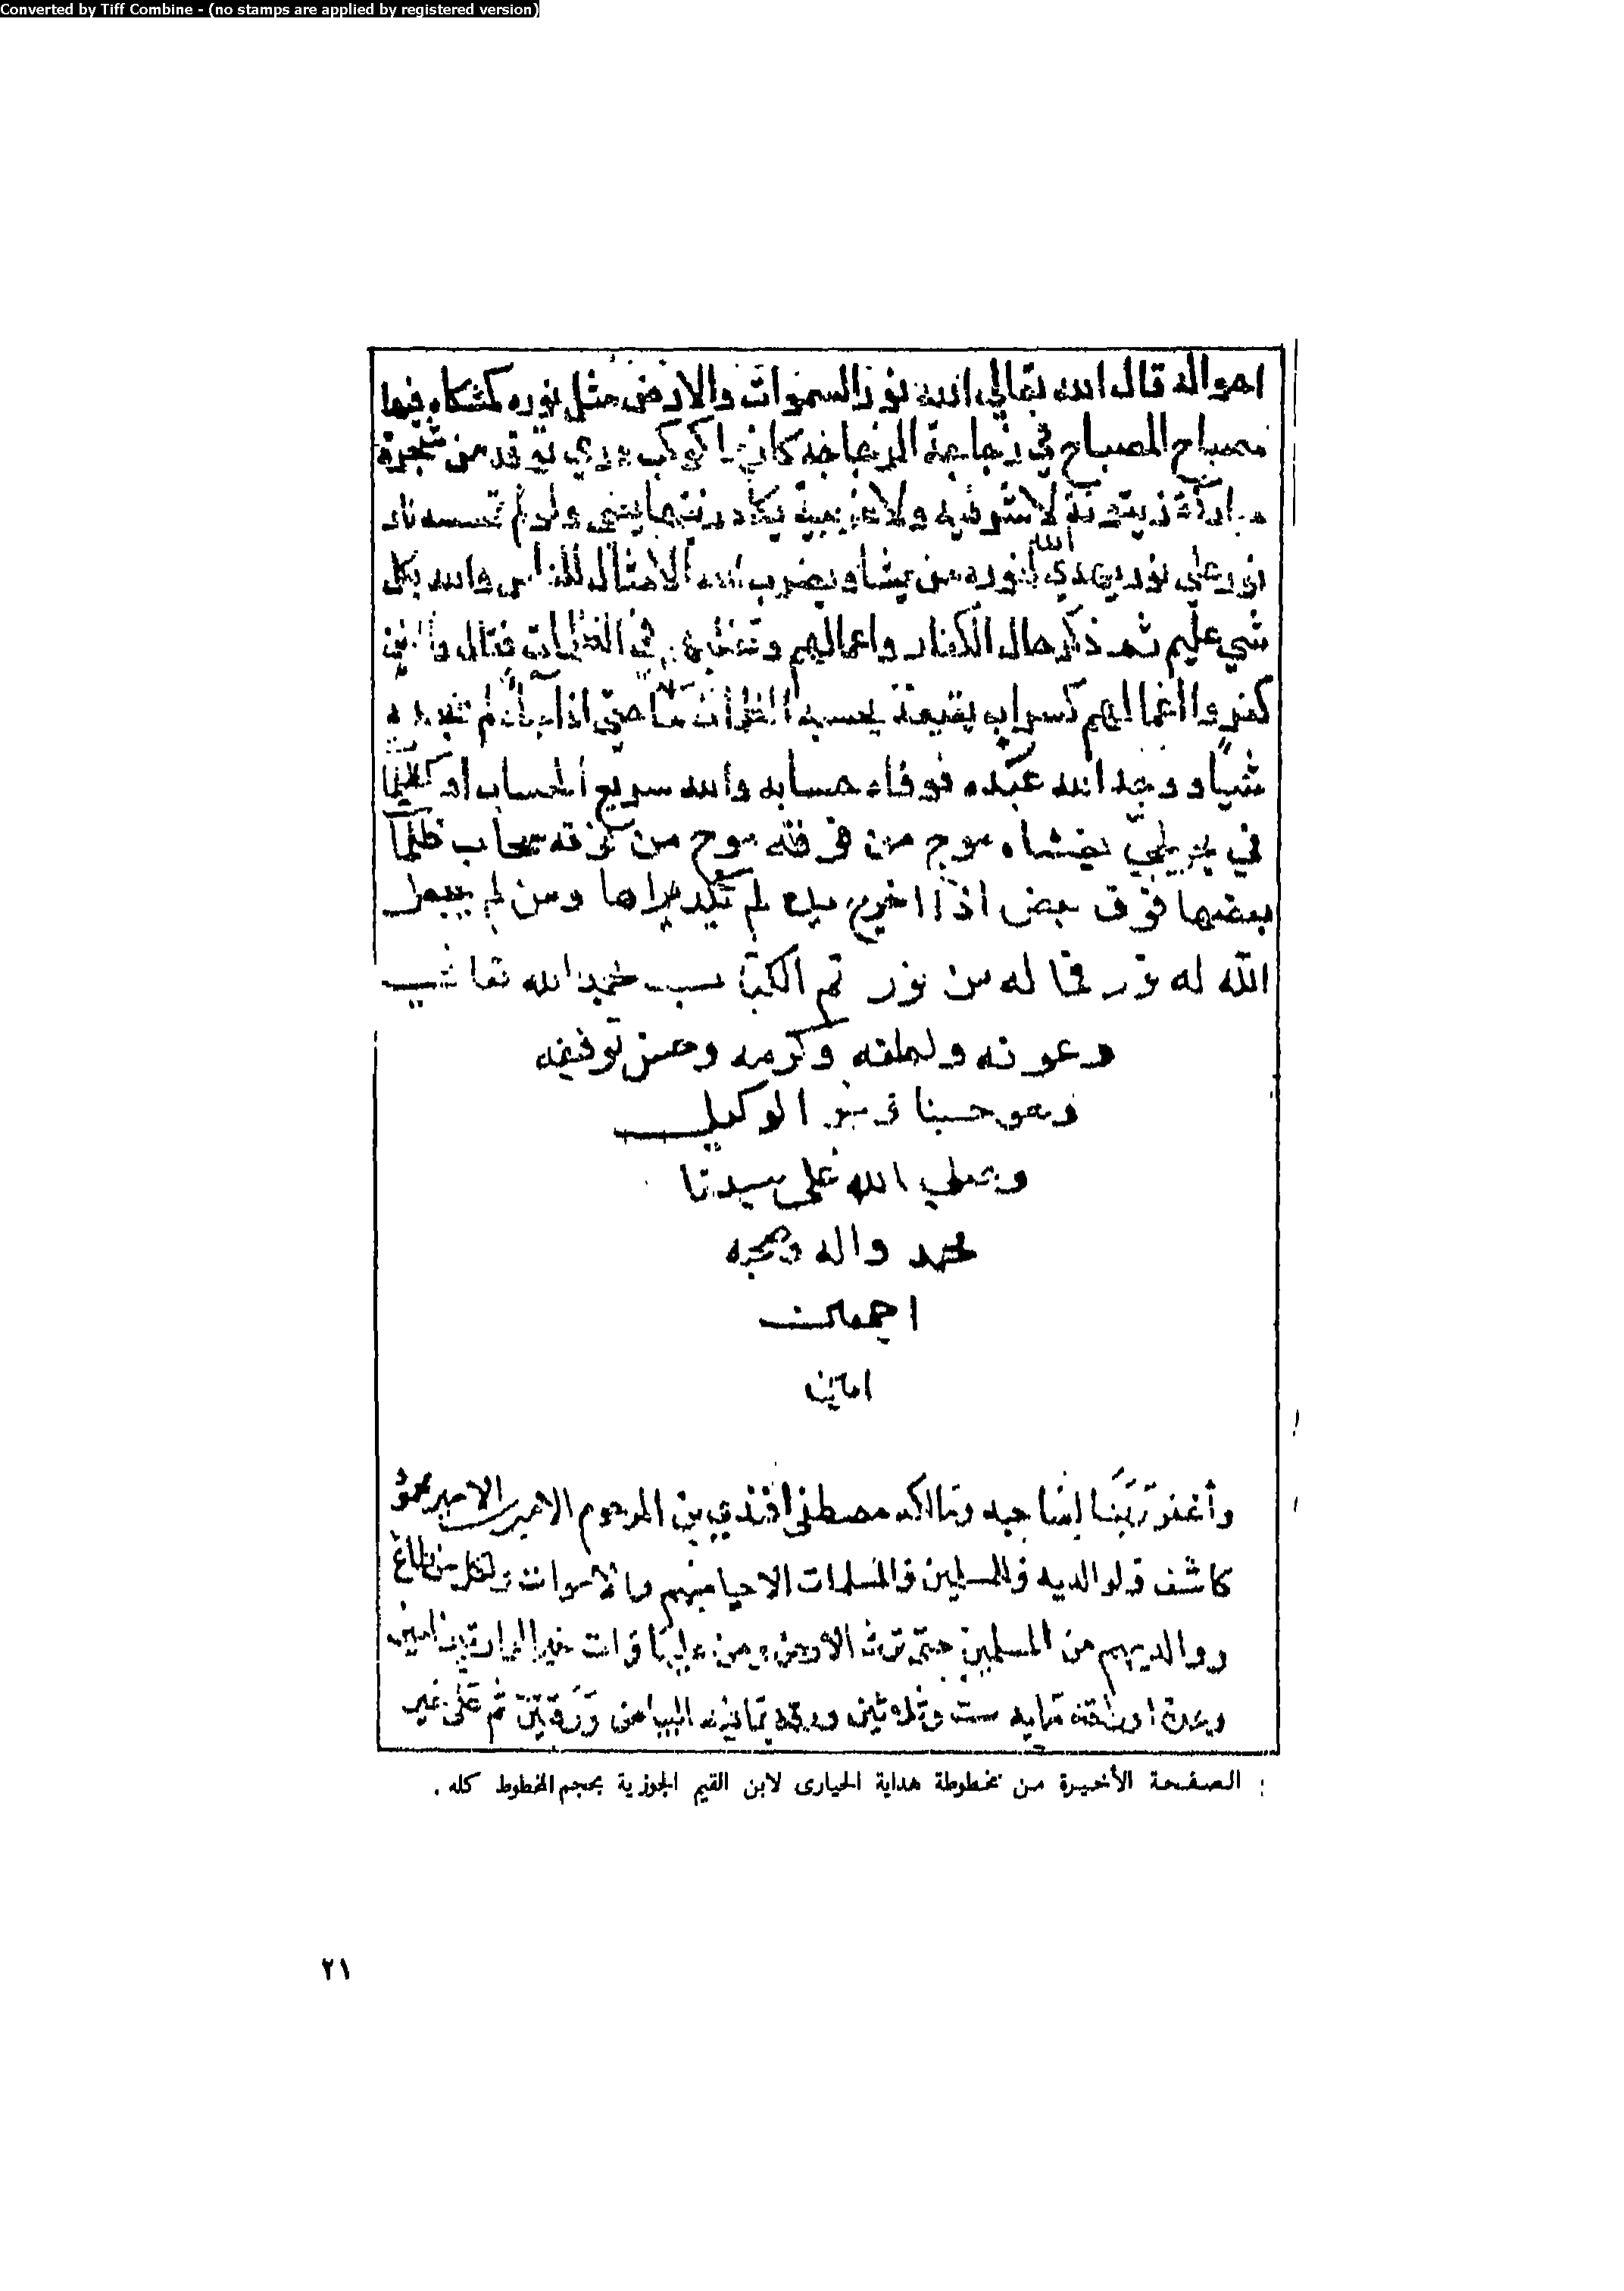 Converted by Tiff Combine - (no stamps are applied by registered version)
احواله قال الله تعالي الله نور السموات والارض مثل نوره كمشكاه فيها
مصباح المصباح في زجاجة الزجاجه كانها كوكب دري توقد من شجرة
مباركة زيتونة لا شرقيه ولا غربية يكاد زيتها يضي ولو لم تمسسه نار
نور على نور يهدي الله لنوره من يشا ويضرب الله الامثال للناس والله بكل
شي عليم ثم ذكر حال الكفار واعمالهم وتقلبهم في الظلمات فقال والذين
كفروا اعمالهم كسراب بقيعة يحسبه الظمآن مآ حتى اذا جآه لم يجده
شيا ووجد الله عنده فوفاه حسابه والله سريع الحساب او كظلمات
في بحر لجي يغشاه موج من فوقه موج من فوقه سحاب ظلمات
بعضها فوق بعض اذا اخرج يده لم يكد يراها ومن لم يجعل
الله له نور فما له من نور تم الكتاب بحمد الله تعالى
وعونه ولطفه وكرمه وحسن توفيقه
وهو حسبنا ونعم الوكيل
وصلي الله على سيدنا
محمد واله وصحبه
اجمعين
امين
وأغفر ربنا لصاحبه ومالكه مصطفى افندي بن المرحوم الامير الامير محمود
كاشف ولوالديه والمسلمين والمسلمات الاحيا منهم والاموات
ووالديهم من المسلمين حتى ترث الارض ومن عليها وانت خير الوارثين امين
وعدة اوراقه مايه ست وثلاثين ورقه البياض ورقتين ثم
الصفحة الأخيرة من مخطوطة هداية الحيارى لابن القيم الجوزية بحجم المخطوط كله .
٢١